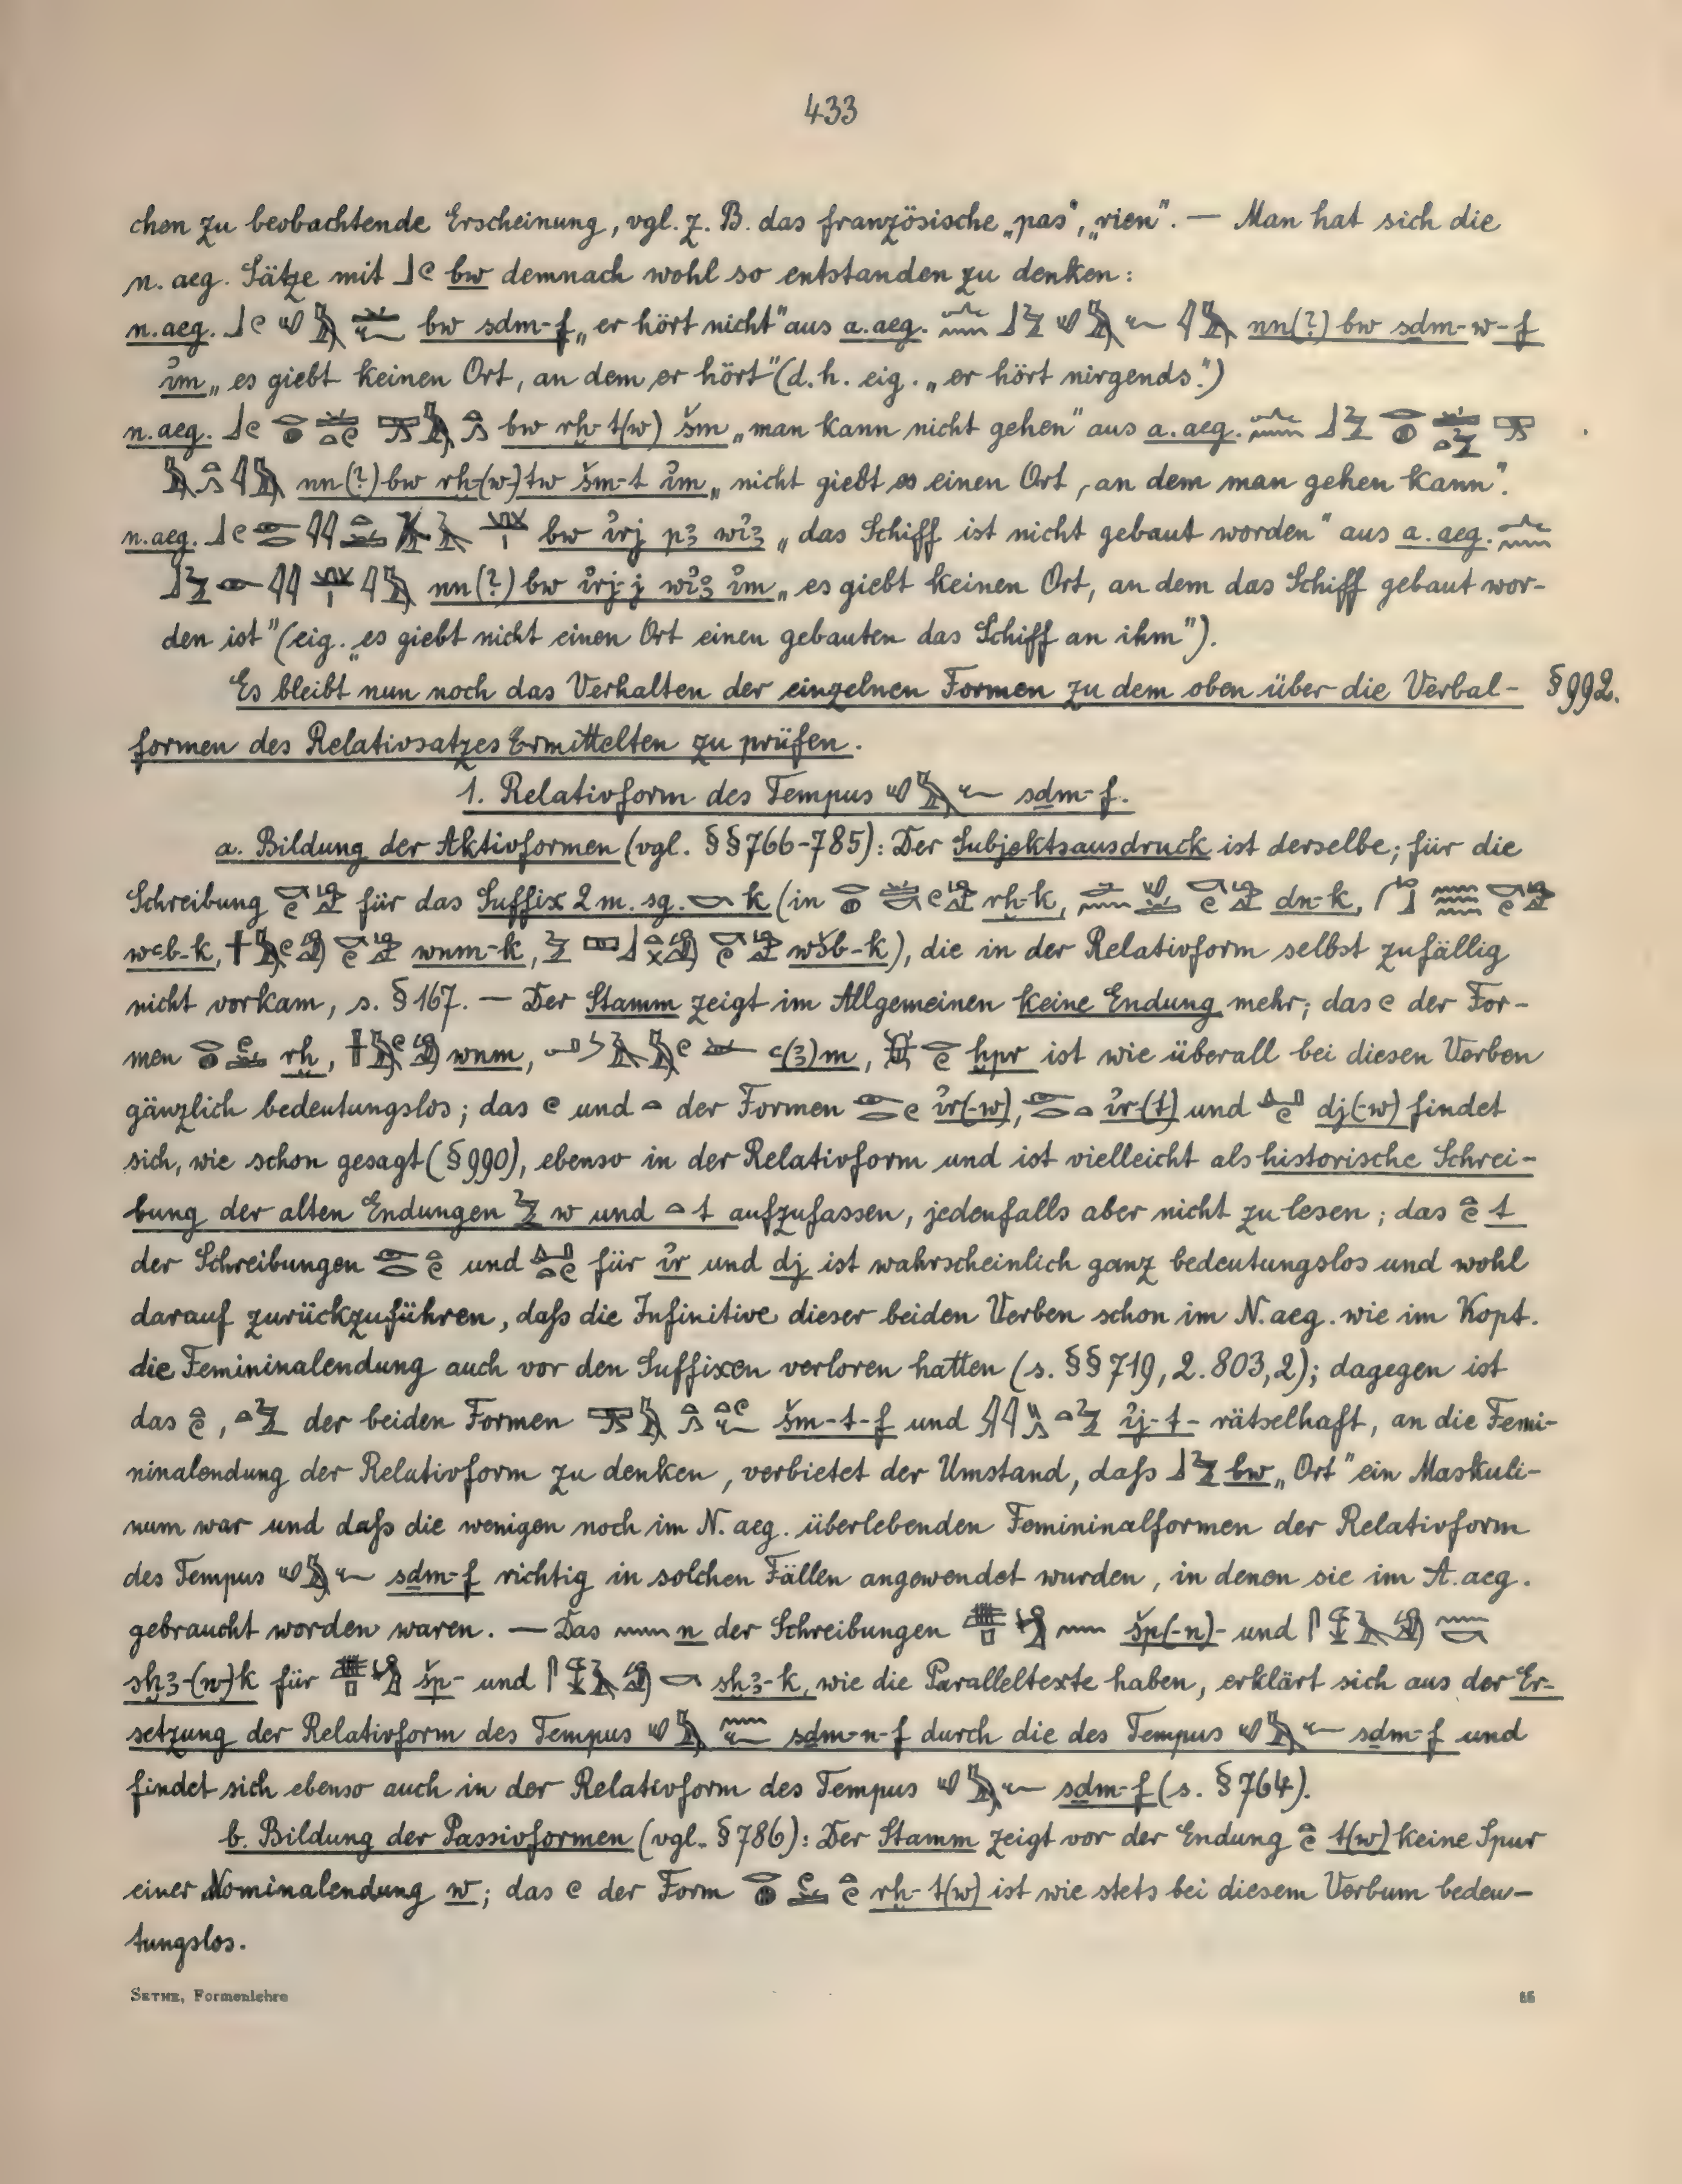 433
chen zu beobachtende Erscheinung, vgl. z. B. das französische „pas“, „rien“. — Man hat sich die
n. aeg. Sätze mit 𓃀𓏲 bw demnach wohl so entstanden zu denken:
n. aeg. bw sḏm-f „er hört nicht“ aus a. aeg. nn(?) bw sḏm-w-f
i͗m „es giebt keinen Ort, an dem er hört“ (d. h. eig. „er hört nirgends“.)
n. aeg. bw rḫ-t(w) šm „man kann nicht gehen“ aus a. aeg.
nn(?) bw rḫ-(w-)tw šm-t i͗m „nicht giebt es einen Ort, an dem man gehen kann“.
n. aeg. bw i͗rj pꜣ wi͗ꜣ „das Schiff ist nicht gebaut worden“ aus a. aeg.
nn(?) bw i͗rj-j wi͗ꜣ i͗m „es giebt keinen Ort, an dem das Schiff gebaut wor-
den ist“ (eig. „es giebt nicht einen Ort einen gebauten das Schiff an ihm“).
Es bleibt nun noch das Verhalten der einzelnen Formen zu dem oben über die Verbal- § 992.
formen des Relativsatzes Ermittelten zu prüfen.
1. Relativform des Tempus sḏm-f.
a. Bildung der Aktivformen (vgl. §§ 766-785): Der Subjektsausdruck ist derselbe; für die
Schreibung für das Suffix 2 m. sg. 𓎡 k (in rḫ-k, dn-k,
wꜥb-k, wnm-k, wšb-k), die in der Relativform selbst zufällig
nicht vorkam, s. § 167. — Der Stamm zeigt im Allgemeinen keine Endung mehr; das 𓏲 der For-
men rḫ, wnm, ꜥ(ꜣ)m, ḫpr ist wie überall bei diesen Verben
gänzlich bedeutungslos; das 𓏲 und 𓏏 der Formen i͗r(-w), i͗r-(t) und dj(-w) findet
sich, wie schon gesagt (§ 990), ebenso in der Relativform und ist vielleicht als historische Schrei-
bung der alten Endungen 𓅱 w und 𓏏 t aufzufassen, jedenfalls aber nicht zu lesen; das 𓏏𓏲 t
der Schreibungen und für i͗r und dj ist wahrscheinlich ganz bedeutungslos und wohl
darauf zurückzuführen, daſs die Infinitive dieser beiden Verben schon im N. aeg. wie im Kopt.
die Femininalendung auch vor den Suffixen verloren hatten (s. §§ 719, 2. 803, 2); dagegen ist
das 𓏏𓏲, 𓏏𓅱 der beiden Formen šm-t-f und i͗j-t- rätselhaft, an die Femi-
ninalendung der Relativform zu denken, verbietet der Umstand, daſs 𓃀𓅱 bw „Ort“ ein Maskuli-
num war und daſs die wenigen noch im N. aeg. überlebenden Femininalformen der Relativform
des Tempus sḏm-f richtig in solchen Fällen angewendet wurden, in denen sie im A. aeg.
gebraucht worden waren. — Das 𓈖 n der Schreibungen šp(-n)- und
sḫꜣ-(n-)k für šp- und sḫꜣ-k, wie die Paralleltexte haben, erklärt sich aus der Er-
setzung der Relativform des Tempus sḏm-n-f durch die des Tempus sḏm-f und
findet sich ebenso auch in der Relativform des Tempus sḏm-f (s. § 764).
b. Bildung der Passivformen (vgl. § 786): Der Stamm zeigt vor der Endung 𓏏𓏲 t(w) keine Spur
einer Nominalendung w; das 𓏲 der Form rḫ-t(w) ist wie stets bei diesem Verbum bedeu-
tungslos.
SETHE, Formenlehre